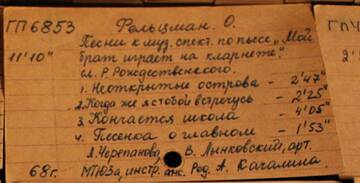 ГП6853 Фельцман. О.
Песни к муз. спект. по пьесе „Мой
11'10" брат играет на кларнете."
сл. Р. Рождественского.
1. Неоткрытые острова - 2'47"
2. Когда же я с тобой встречусь - 2'25"
3. Кончается школа - 4'05"
4. Песенка о главном - 1'53"
Л. Черепанова В. Лынковский, арт.
68г. МТЮЗа, инстр. анс. Ред. А. Качалина.